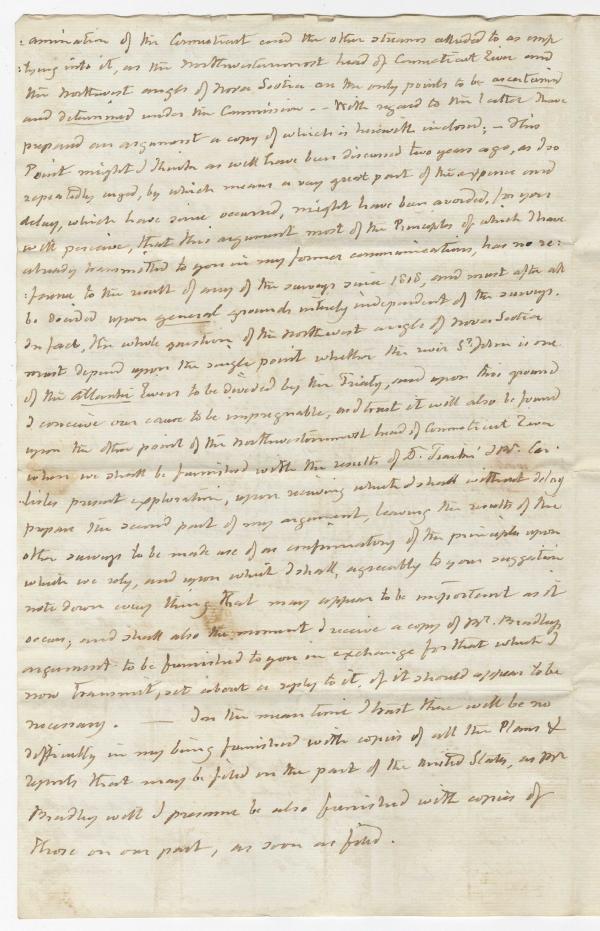 :amination of the Connecticut and the other streams alluded to as emp
:tying into it, as the Northwesternmost head of Connecticut River and
the Northwest angle of Nova Scotia are the only points to be ascertained
and determined under the Commission. -- With regard to the latter I have
prepared an argument a copy of which is herewith inclosed; - This
Point might I think as well have been discussed two years ago, as I so
repeatedly urged, by which means a very great part of the expence and
delay, which have since occurred, might have been avoided, for you
will perceive, that this argument most of the Principles of which I have
already transmitted to you in my former communications, has no re:
:ference to the result of any of the surveys since 1818, and must after all
be decided upon general grounds intirely independent of the surveys.
In fact, the whole question of the Northwest angle of Nova Scotia
must depend upon the single point whether the river St. John is one
of the Atlantic Rivers to be divided by the Treaty, and upon this ground
I conceive our cause to be impregnable, and trust it will also be found
upon the other point of the Northwesternmost head of Connecticut River
when we shall be furnished with the results of D. Tiarks' & Mr. Car:
:liles present exploration, upon receiving which I shall without delay
prepare the second part of my argument, leaving the results of the
other surveys to be made use of as confirmatory of the principles upon
which we rely, and upon which I shall, agreeably to your suggestion
note down every thing that may appear to be important as it
occurs; and shall also the moment I receive a copy of Mr. Bradleys
argument to be furnished to you in exchange for that which I
now transmit, set about a reply to it, if it should appear to be
necessary. — In the mean time I trust there will be no
difficulty in my being furnished with copies of all the Plans &
reports that may be filed on the part of the United States, as Mr
Bradley will I presume be also furnished with copies of
those on our part, as soon as filed.